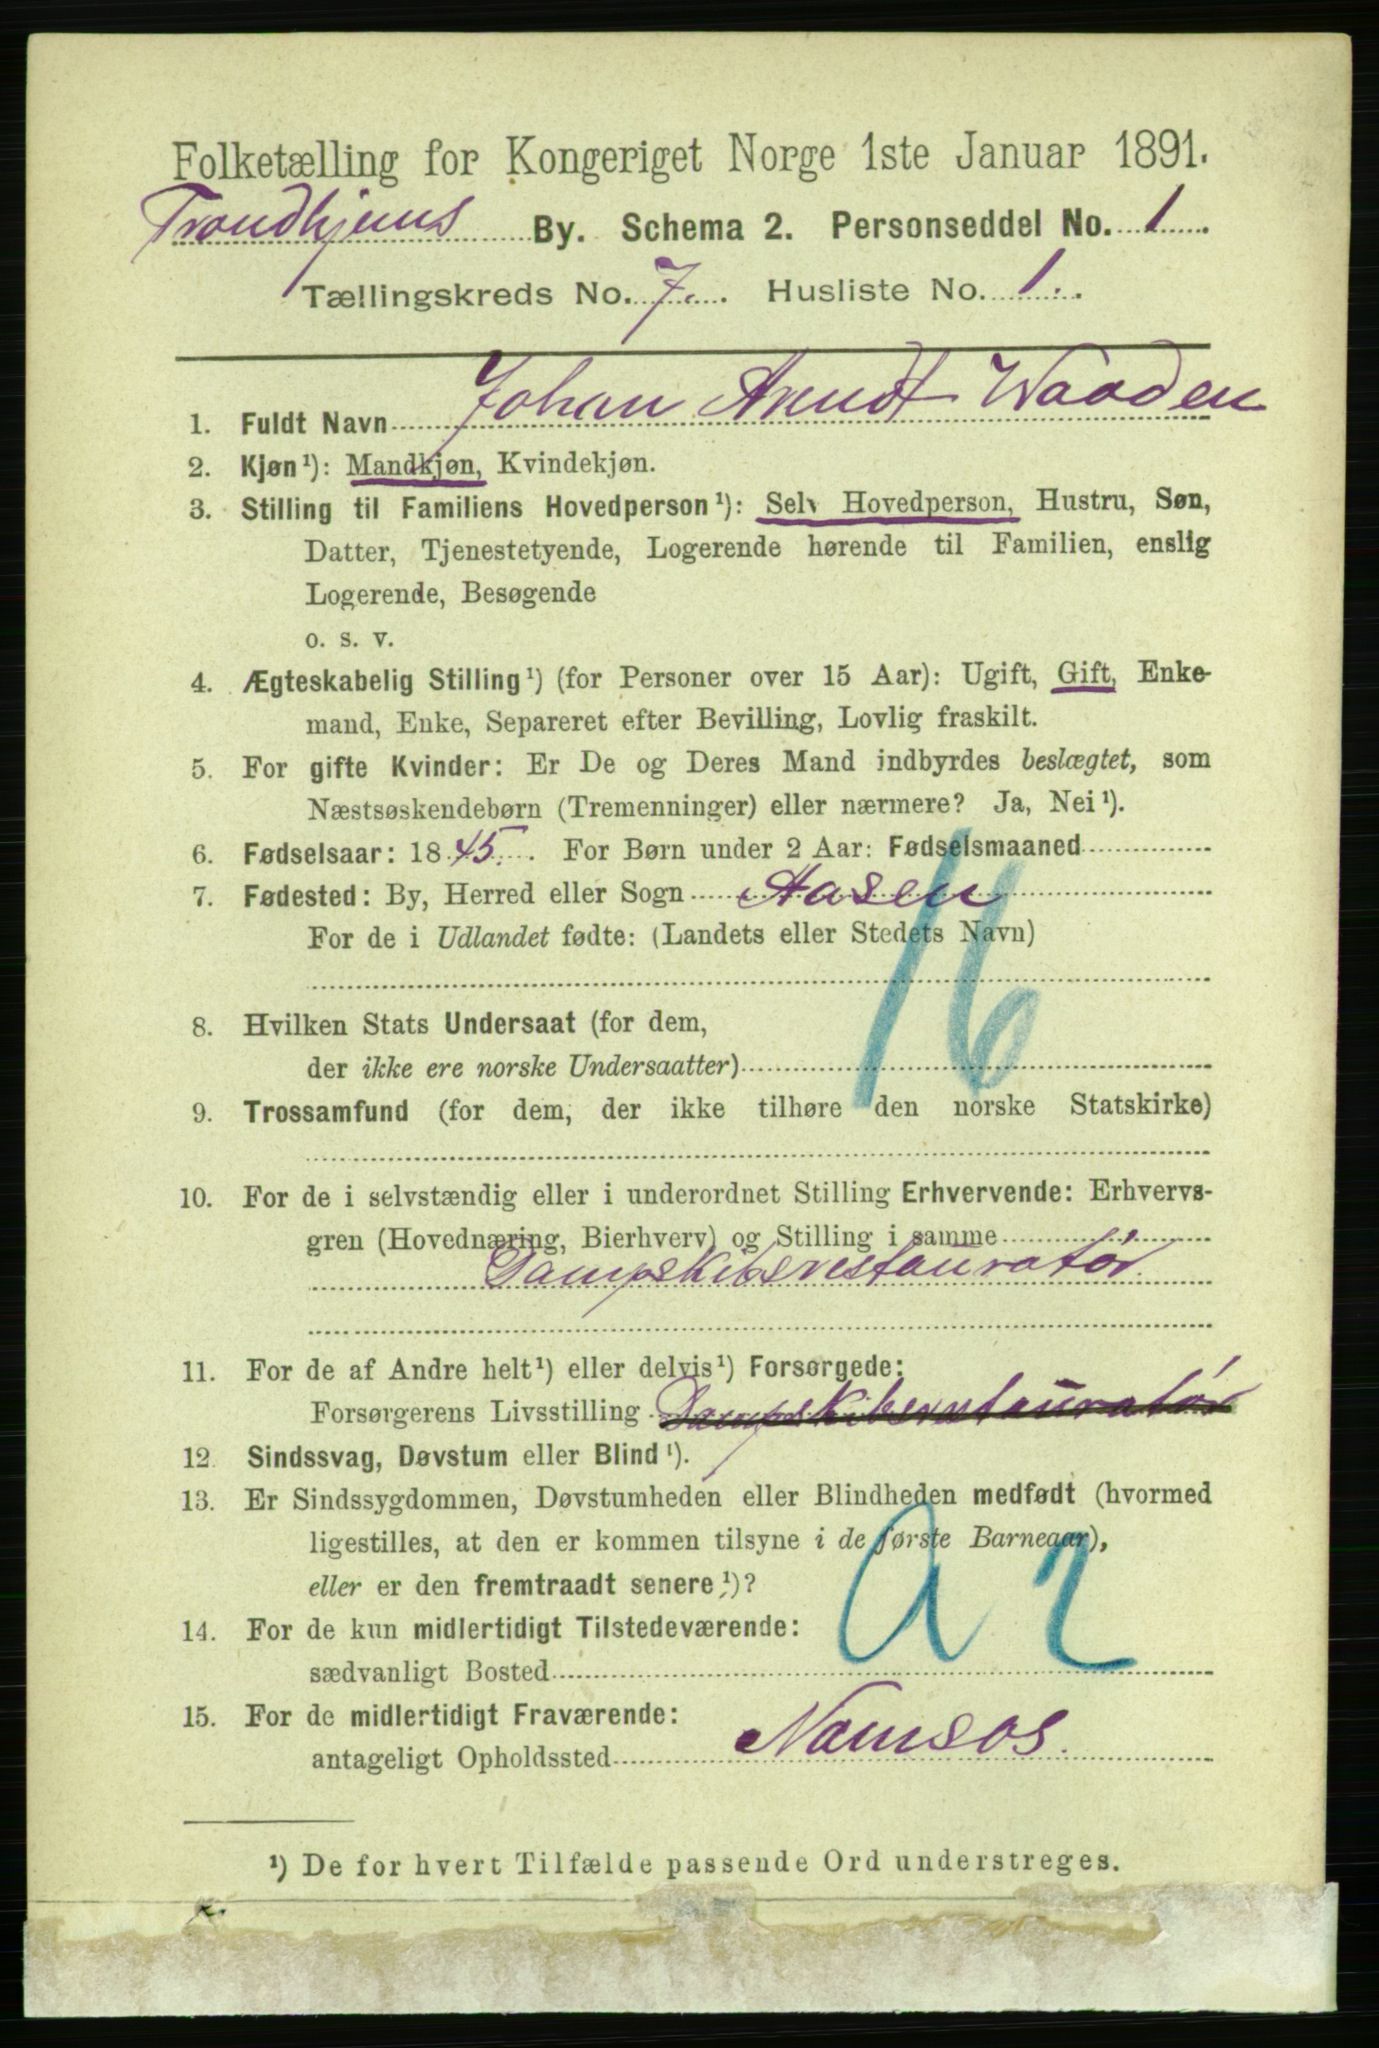 Folketælling for Kongeriget Norge 1ste Januar 1891.
Trondhjems By. Schema 2. Personseddel No. 1
Tællingskreds No. 7. Husliste No. 1.
1. Fuldt Navn Johan Arndt Waaden
2. Kjøn¹): Mandkjøn, Kvindekjøn.
3. Stilling til Familiens Hovedperson¹): Selv Hovedperson, Hustru, Søn,
Datter, Tjenestetyende, Logerende hørende til Familien, enslig
Logerende, Besøgende
o. s. v.
4. Ægteskabelig Stilling¹) (for Personer over 15 Aar): Ugift, Gift, Enke-
mand, Enke, Separeret efter Bevilling, Lovlig fraskilt.
5. For gifte Kvinder: Er De og Deres Mand indbyrdes beslægtet, som
Næstsøskendebørn (Tremenninger) eller nærmere? Ja, Nei¹).
6. Fødselsaar: 1845. For Børn under 2 Aar: Fødselsmaaned
7. Fødested: By, Herred eller Sogn Aasen
For de i Udlandet fødte: (Landets eller Stedets Navn)
16
8. Hvilken Stats Undersaat (for dem,
der ikke ere norske Undersaatter)
9. Trossamfund (for dem, der ikke tilhøre den norske Statskirke)
10. For de i selvstændig eller i underordnet Stilling Erhvervende: Erhvervs-
gren (Hovednæring, Bierhverv) og Stilling i samme
Dampskibsrestauratør
11. For de af Andre helt¹) eller delvis¹) Forsørgede:
Forsørgerens Livsstilling Dampskibsrestauratør
12. Sindssvag, Døvstum eller Blind¹).
13. Er Sindssygdommen, Døvstumheden eller Blindheden medfødt (hvormed
ligestilles, at den er kommen tilsyne i de første Barneaar),
eller er den fremtraadt senere¹)?
a 2
14. For de kun midlertidigt Tilstedeværende:
sædvanligt Bosted
15. For de midlertidigt Fraværende:
antageligt Opholdssted Namsos.
¹) De for hvert Tilfælde passende Ord understreges.